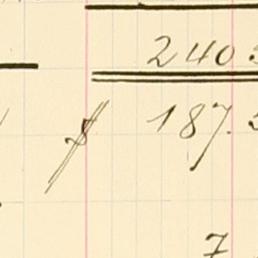 240
$ 187.
7